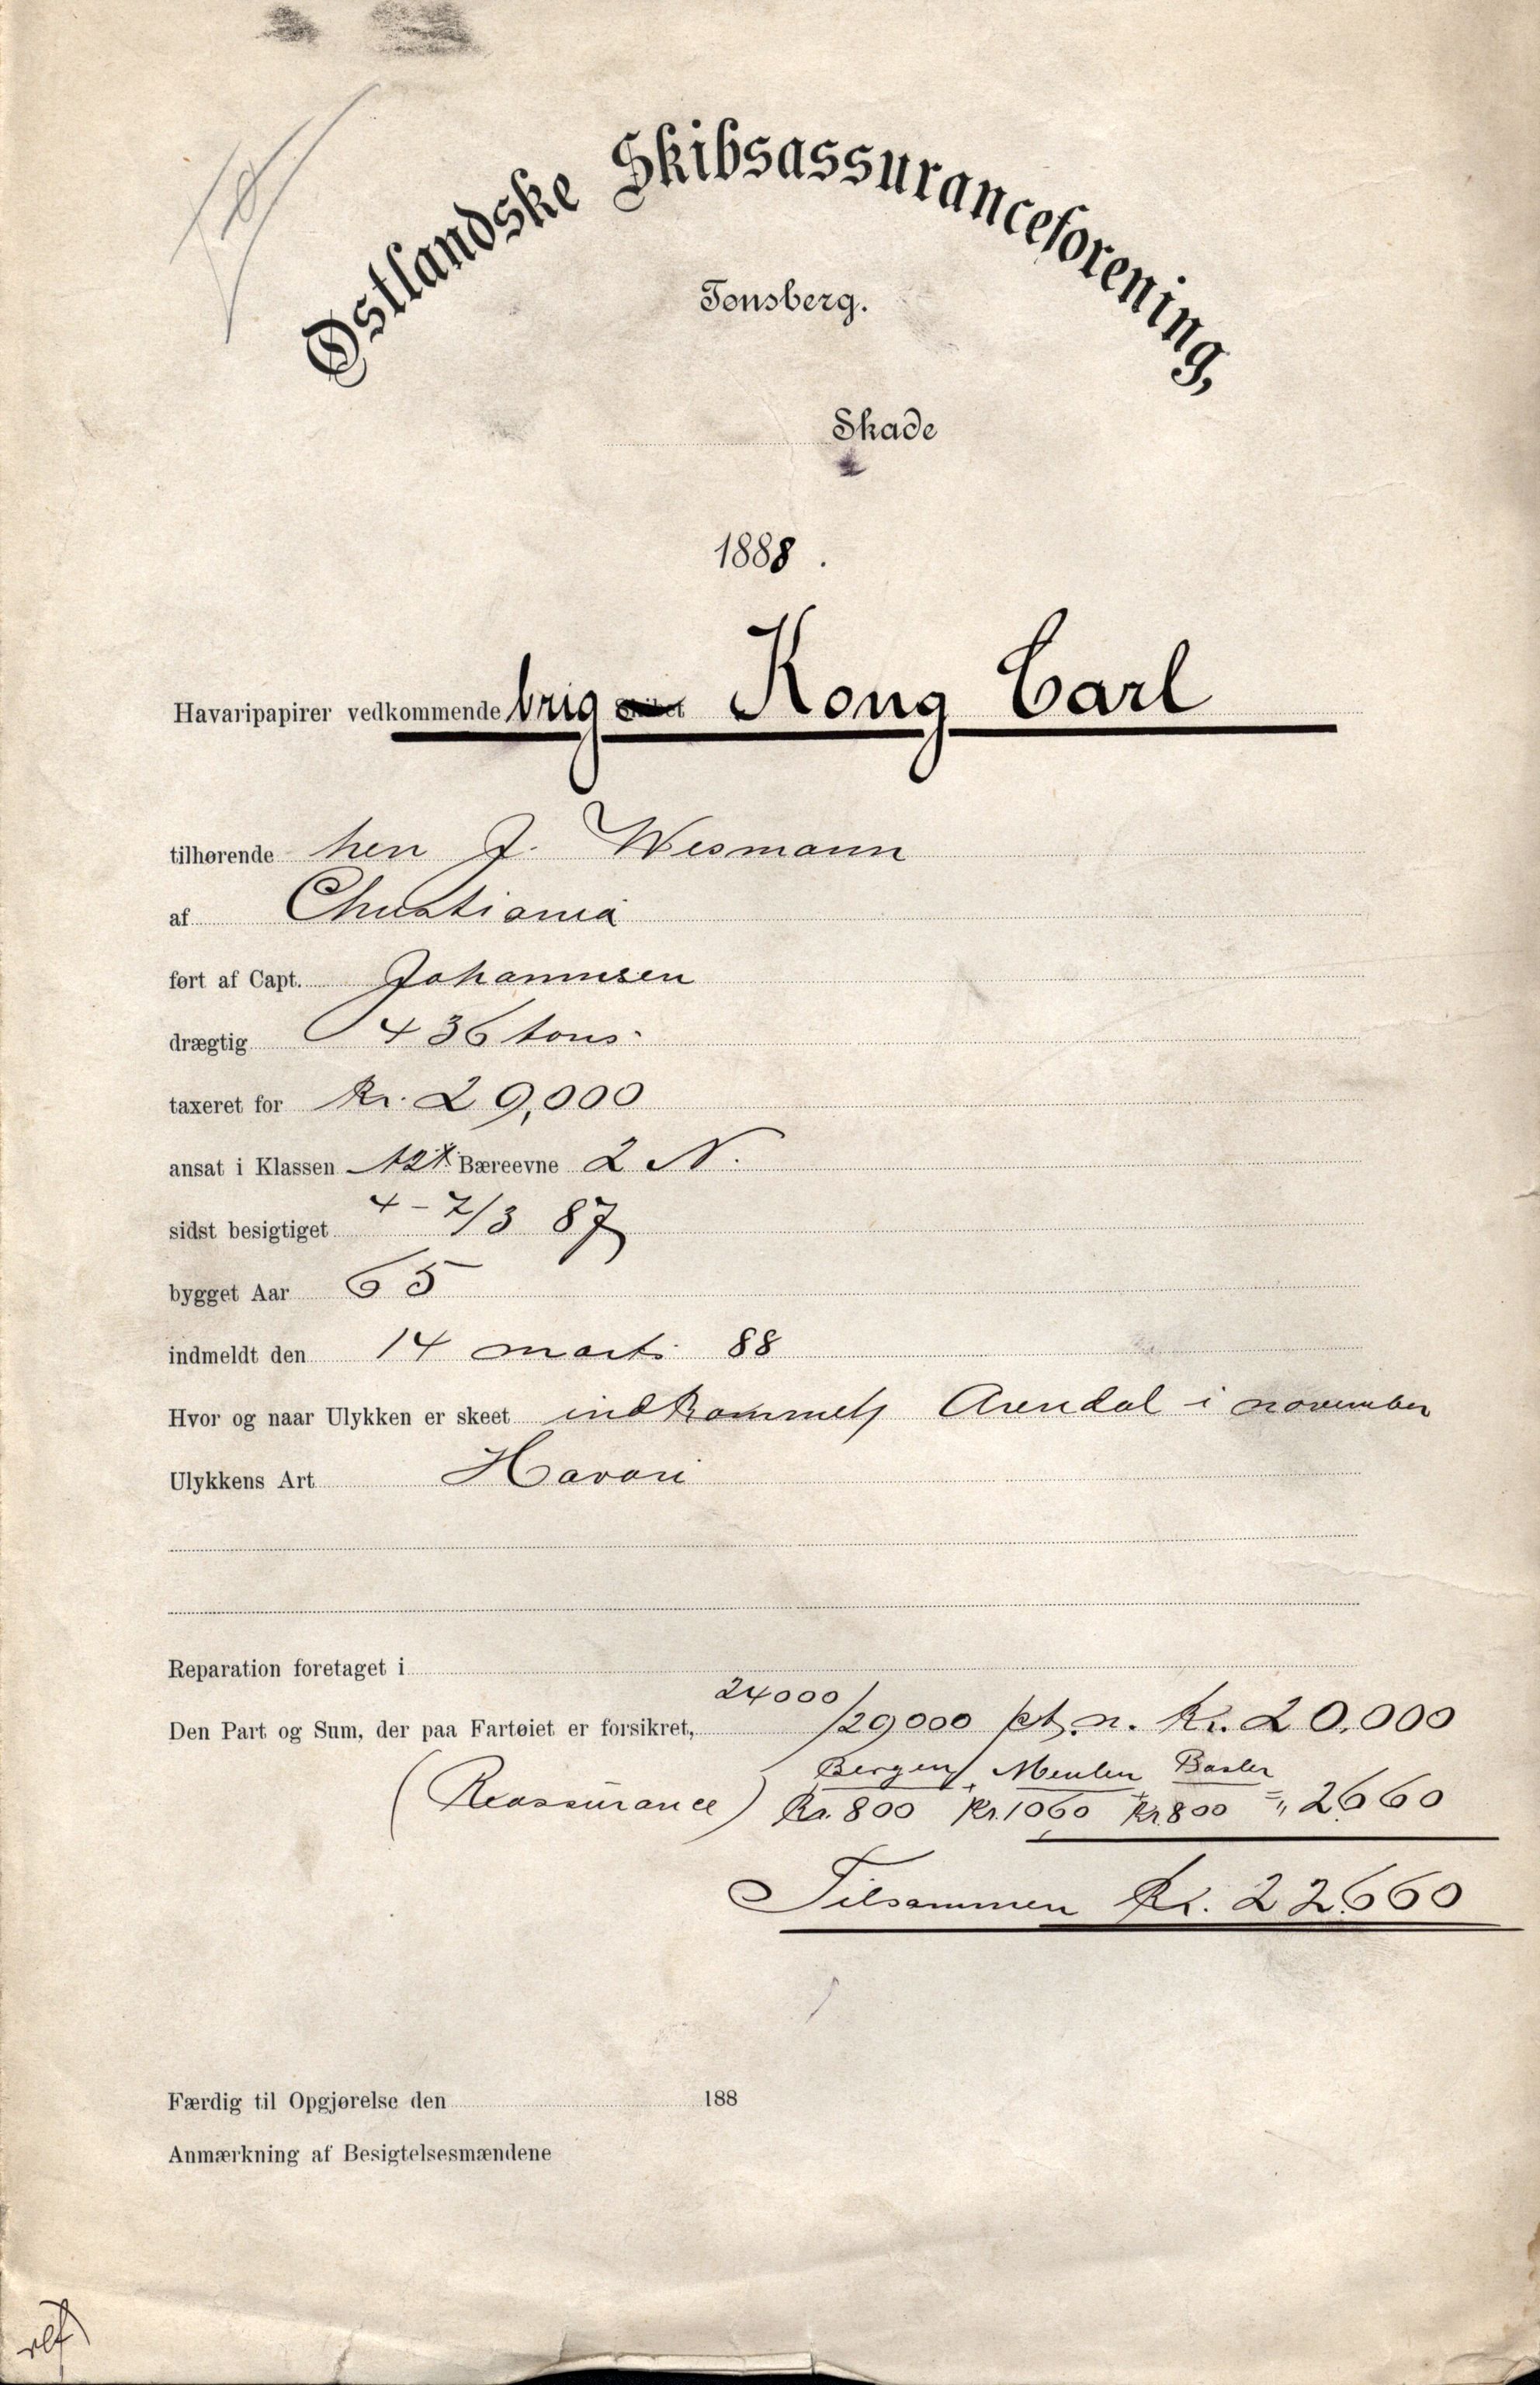 Østlandske Skibsassuranceforening,
Tønsberg.
Skade
1888.
Havaripapirer vedkommende brig Skibet Kong Carl
tilhørende herr J. Wesmann
af Christiania
ført af Capt. Johannesen
drægtig 436 tons
taxeret for Kr. 29,000
ansat i Klassen A2 Bæreevne 2 N.
sidst besigtiget 4-7/3 87
bygget Aar 65
indmeldt den 14 marts 88
Hvor og naar Ulykken er skeet indkommet Arendal i november
Ulykkens Art Havari
Reparation foretaget i
Den Part og Sum, der paa Fartøiet er forsikret, 24000/29000 pt. n. Kr. 20.000
Bergen Meulen Basler
(Reassurance) Kr. 800 + Kr. 1060 + Kr. 800 = " 2660
Tilsammen Kr. 22.660
Færdig til Opgjørelse den 188
Anmærkning af Besigtelsesmændene